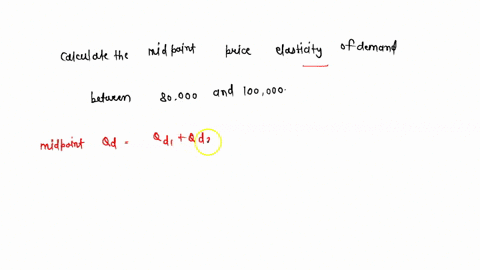 Calculate the midpoint price elasticity of demand
between 80.000 and 100,000.
midpoint Qd = Qd1 + Qd2